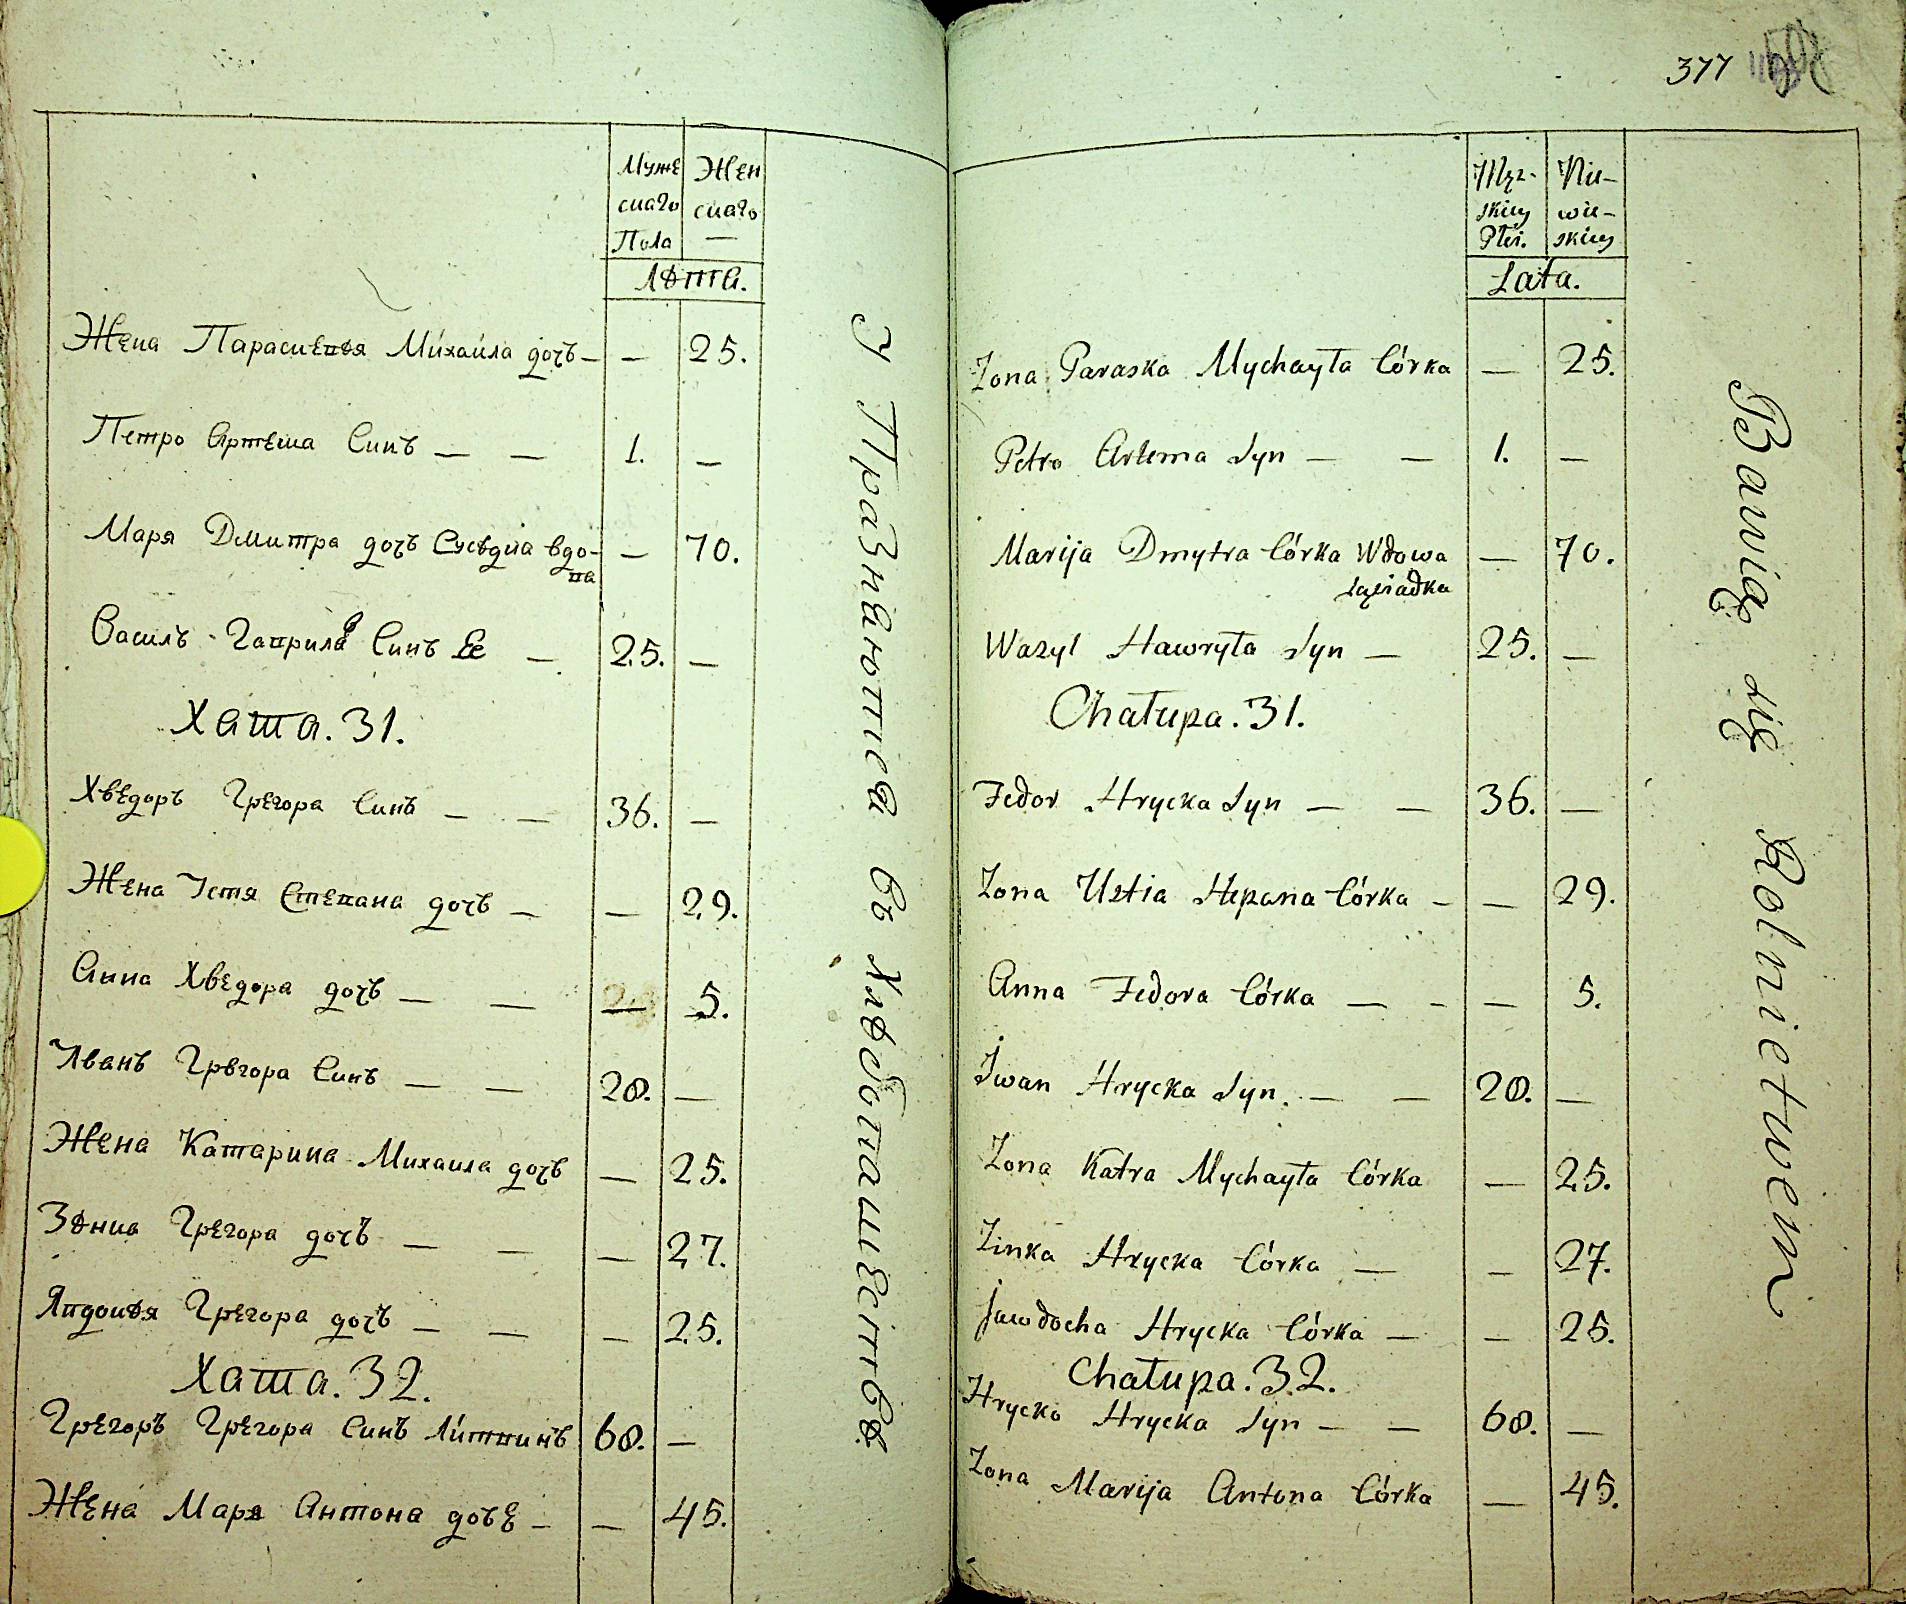 377
Муже
скаго
Пола
Жен
скаго
—
Лѣта.
Жена Параскевѣя Михаила дочъ — — 25.
Петро Артема Синъ — — 1. —
Маря Дмитра дочъ Сусѣдка вдо- — 70.
ва
Василъ Гаврила Синъ Ее — 25. —
Хата. 31.
Хведоръ Грегора Синъ — — 36. —
Жена Устя Степана дочъ — — 29.
Анна Хведора дочъ — — — 5.
Иванъ Грегора Синъ — — 20. —
Жена Катарина Михаила дочъ — 25.
Зѣнка Грегора дочъ — — — 27.
Явдокѣя Грегора дочъ — — — 25.
Хата. 32.
Грегоръ Грегора Синъ Литвинъ 60. —
Жена Маря Антона дочъ — — 45.
Упражняются въ Хлѣбопашествѣ.
Męz-
skiey
Płci.
Nie-
wie-
skiey
Lata.
Zona Paraska Mychayła Córka — 25.
Petro Artema Syn — — 1. —
Marija Dmytra Córka Wdowa — 70.
sąsiadka
Wazyl Hawryła Syn — 25. —
Chałupa. 31.
Fedor Hrycka Syn — — 36. —
Zona Ustia Stepana Córka — — 29.
Anna Fedora Córka — - — 5.
Iwan Hrycka Syn. — — 20. —
Zona Katra Mychayła Córka — 25.
Zinka Hrycka Córka — — 27.
Jawdocha Hrycka Córka — — 25.
Chałupa. 32.
Hrycko Hrycka Syn — — 60. —
Zona Marija Antona Córka — 45.
Bawią się Rolnictwem